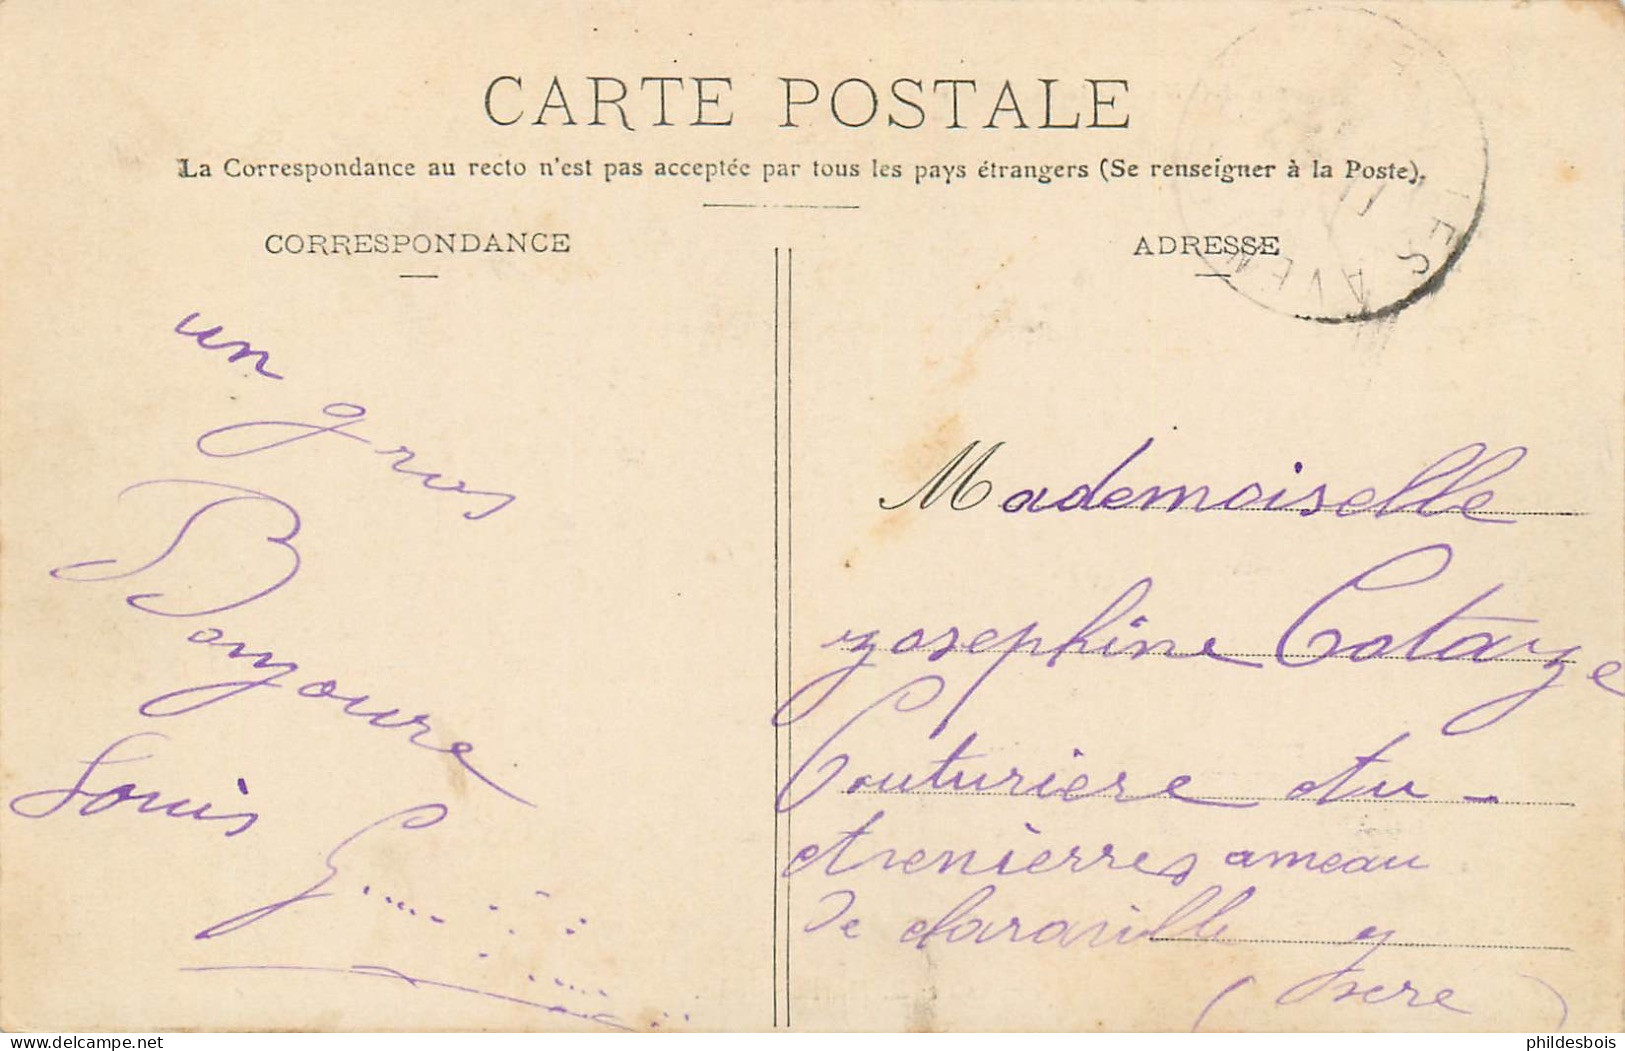 CARTE POSTALE
La Correspondance au recto n'est pas acceptée par tous les pays étrangers (Se renseigner à la Poste).
CORRESPONDANCE
un
gros
Bonjoure
Louis G
ADRESSE
Mademoiselle
Josephine Cotaze
Couturiere
ameau
De
Isere
phildesbois